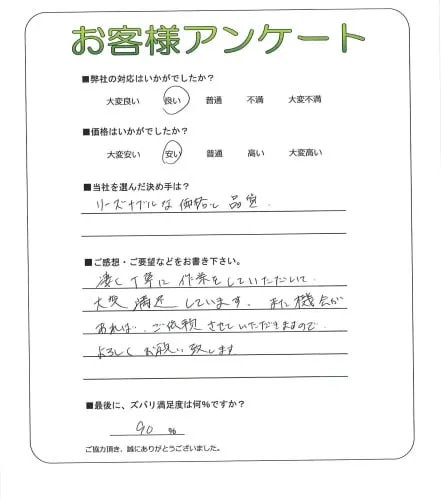 お客様アンケート
■弊社の対応はいかがでしたか?
大変良い 良い 普通 不満 大変不満
■価格はいかがでしたか?
大変安い 安い 普通 高い 大変高い
■当社を選んだ決め手は?
リーズナブルな価格と品質.
■ご感想・ご要望などをお書き下さい。
凄く丁寧に作業をしていただいて.
大変満足しています. また機会が
あれば. ご依頼させていただきますので.
よろしくお願い致します
■最後に、ズバリ満足度は何%ですか?
90 %
ご協力頂き、誠にありがとうございました。